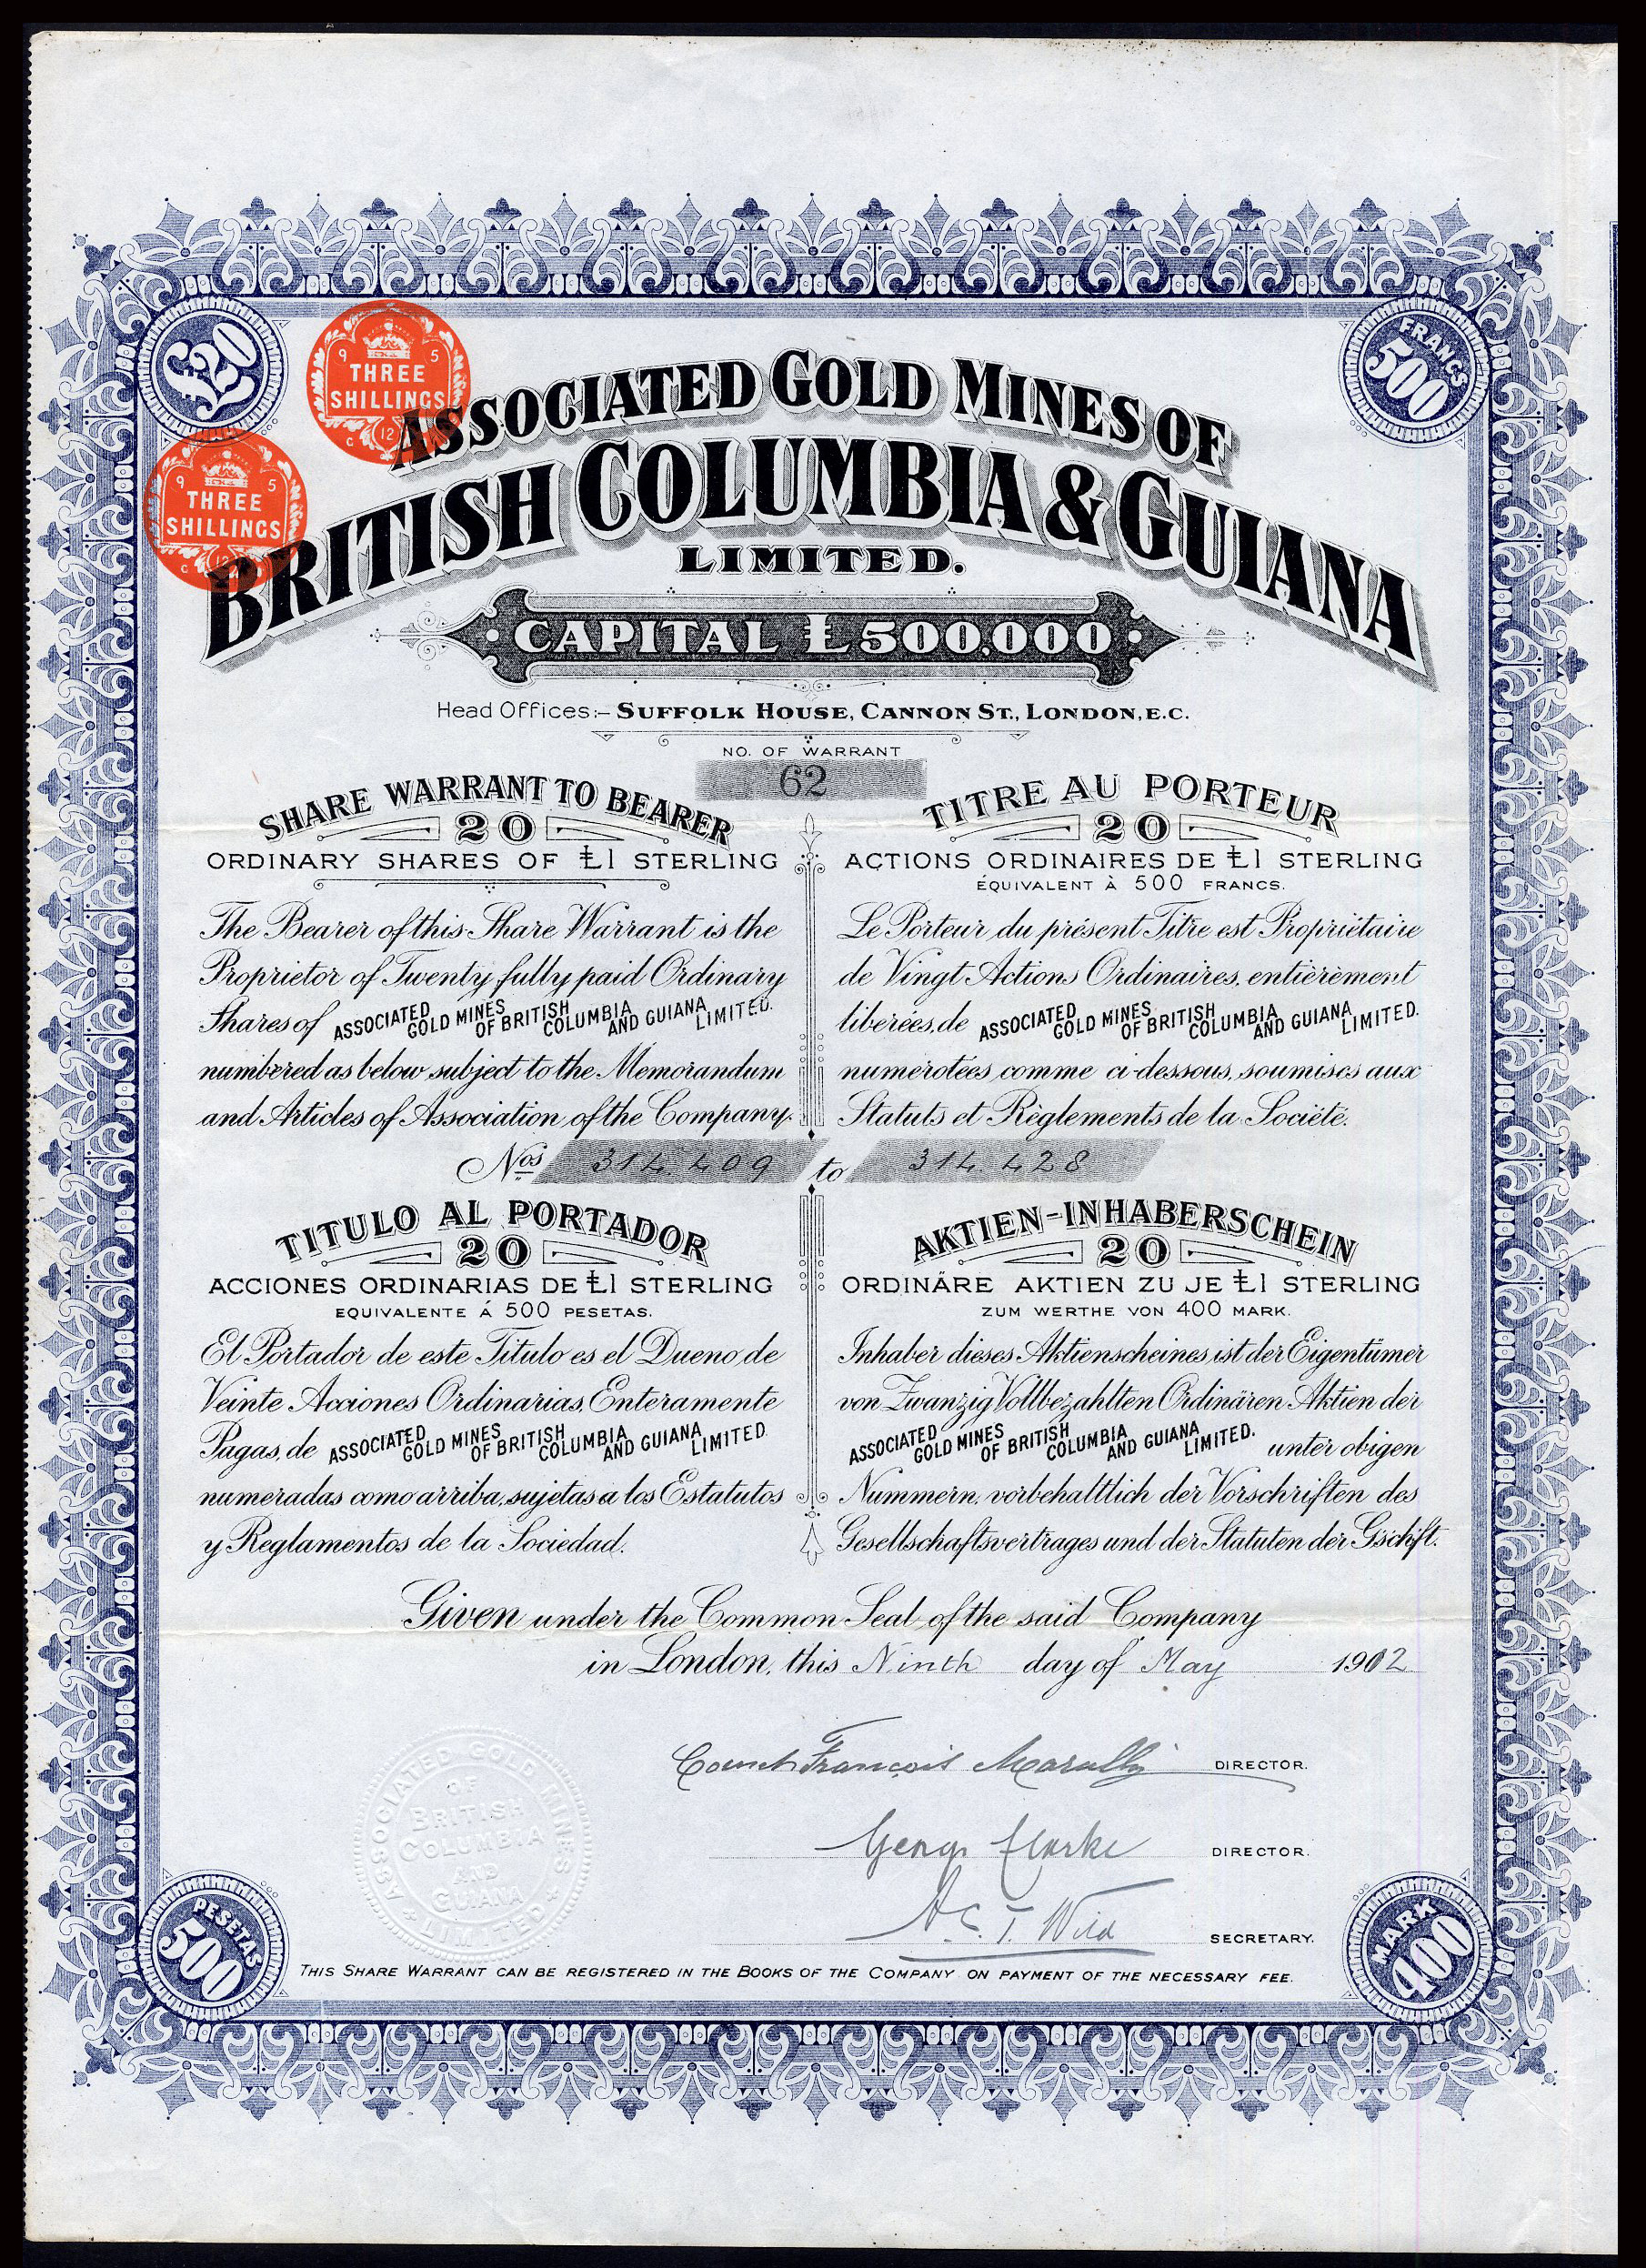 £20
FRANCS
500
9 5
THREE
SHILLINGS
C 12
9 5
THREE
SHILLINGS
C 12
ASSOCIATED GOLD MINES OF
BRITISH COLUMBIA & GUIANA
LIMITED.
CAPITAL £500,000
Head Offices:– SUFFOLK HOUSE, CANNON ST., LONDON, E.C.
NO. OF WARRANT
62
SHARE WARRANT TO BEARER
20
ORDINARY SHARES OF £1 STERLING
The Bearer of this Share Warrant is the
Proprietor of Twenty fully paid Ordinary
Shares of ASSOCIATED GOLD MINES OF BRITISH COLUMBIA AND GUIANA LIMITED.
numbered as below subject to the Memorandum
and Articles of Association of the Company.
TITRE AU PORTEUR
20
ACTIONS ORDINAIRES DE £1 STERLING
ÉQUIVALENT À 500 FRANCS.
Le Porteur du présent Titre est Propriétaire
de Vingt Actions Ordinaires, entièrement
libérées, de ASSOCIATED GOLD MINES OF BRITISH COLUMBIA AND GUIANA LIMITED.
numérotées comme ci-dessous, soumises aux
Statuts et Règlements de la Société.
Nos 314.409 to 314.428
TITULO AL PORTADOR
20
ACCIONES ORDINARIAS DE £1 STERLING
EQUIVALENTE Á 500 PESETAS.
El Portador de este Titulo es el Dueno de
Veinte Acciones Ordinarias, Enteramente
Pagas, de ASSOCIATED GOLD MINES OF BRITISH COLUMBIA AND GUIANA LIMITED.
numeradas como arriba, sujetas a los Estatutos
y Reglamentos de la Sociedad.
AKTIEN-INHABERSCHEIN
20
ORDINÄRE AKTIEN ZU JE £1 STERLING
ZUM WERTHE VON 400 MARK.
Inhaber dieses Aktienscheines ist der Eigentümer
von Zwanzig Vollbezahlten Ordinären Aktien der
ASSOCIATED GOLD MINES OF BRITISH COLUMBIA AND GUIANA LIMITED. unter obigen
Nummern, vorbehaltlich der Vorschriften des
Gesellschaftsvertrages und der Statuten der Gschft.
Given under the Common Seal of the said Company
in London, this Ninth day of May 1902
Count François DIRECTOR.
George Clarke DIRECTOR.
A. C. T. Wild SECRETARY.
ASSOCIATED GOLD MINES
OF
BRITISH
COLUMBIA
AND
GUIANA
LIMITED
PESETAS
500
MARK
400
THIS SHARE WARRANT CAN BE REGISTERED IN THE BOOKS OF THE COMPANY ON PAYMENT OF THE NECESSARY FEE.